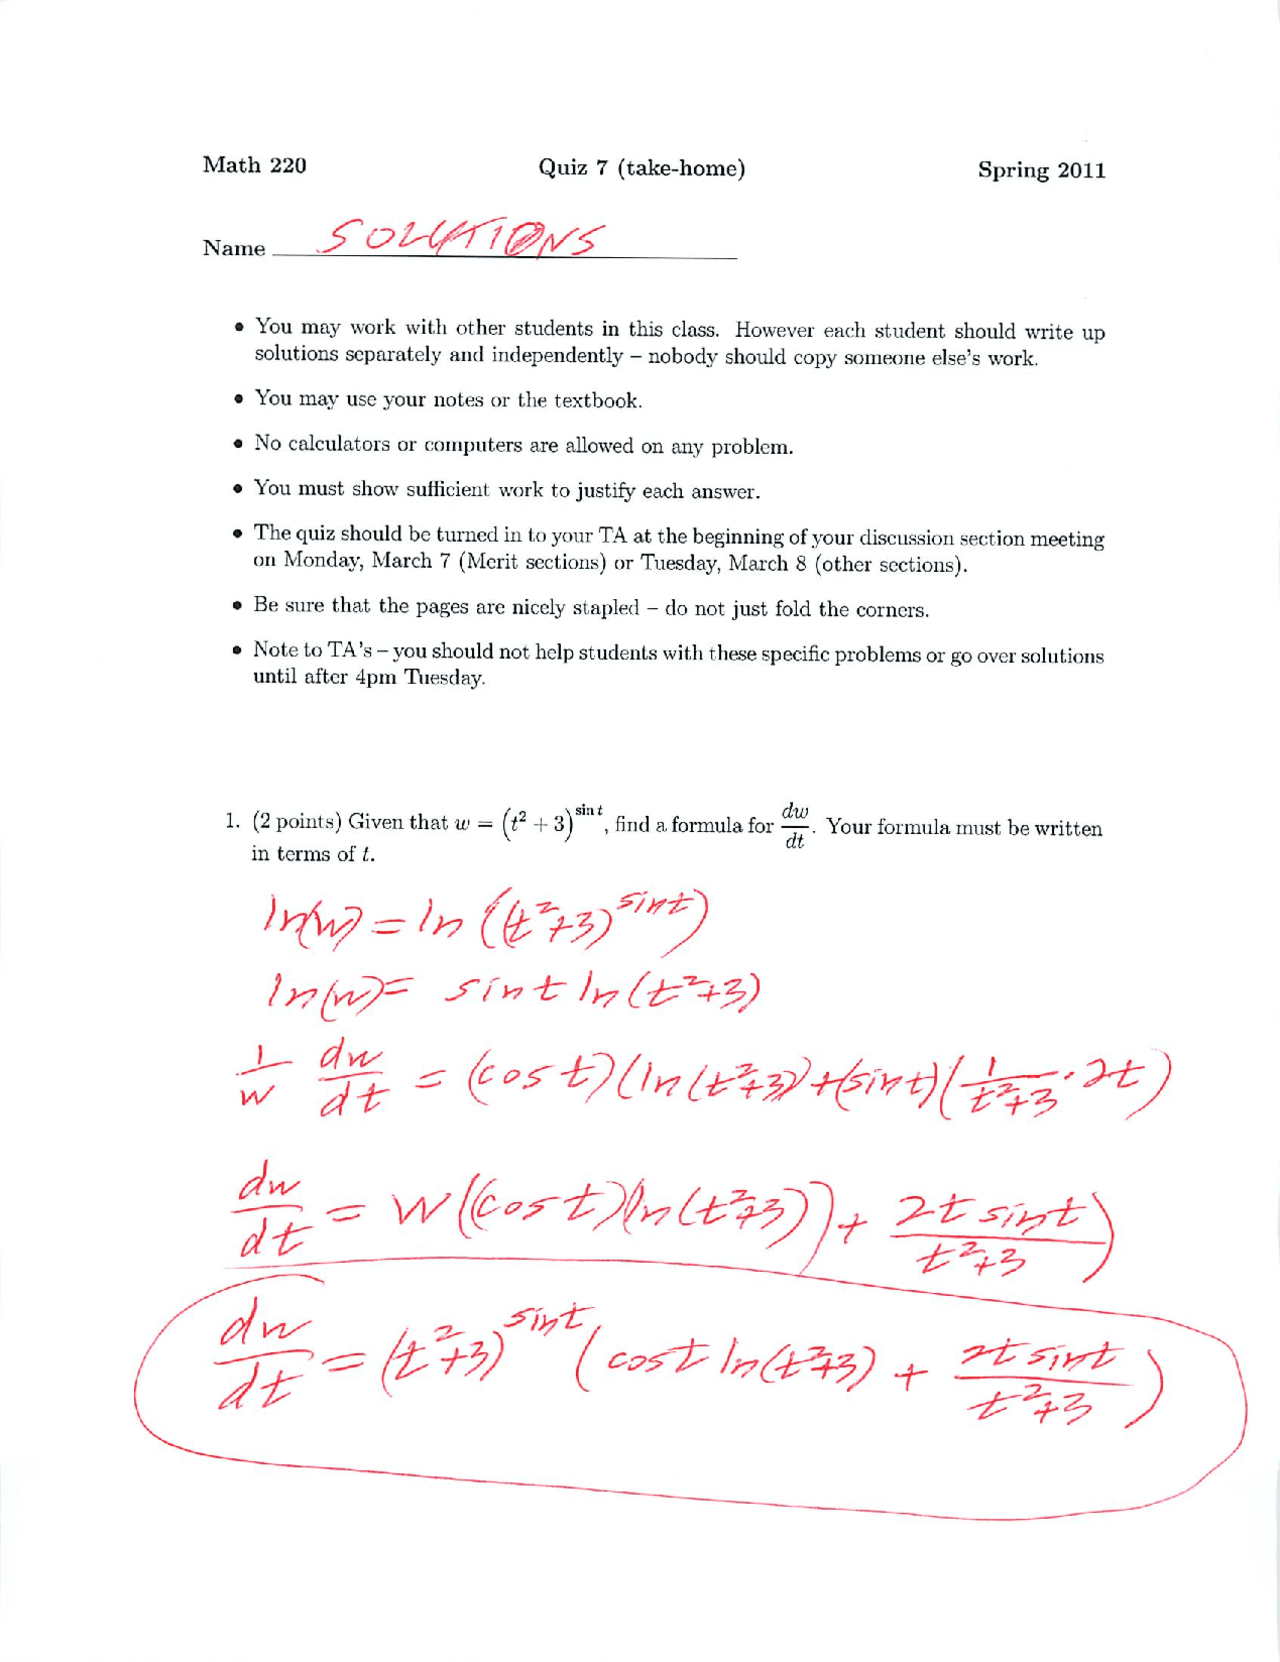 Math 220 Quiz 7 (take-home) Spring 2011
Name SOLUTIONS
• You may work with other students in this class. However each student should write up
solutions separately and independently – nobody should copy someone else's work.
• You may use your notes or the textbook.
• No calculators or computers are allowed on any problem.
• You must show sufficient work to justify each answer.
• The quiz should be turned in to your TA at the beginning of your discussion section meeting
on Monday, March 7 (Merit sections) or Tuesday, March 8 (other sections).
• Be sure that the pages are nicely stapled – do not just fold the corners.
• Note to TA's – you should not help students with these specific problems or go over solutions
until after 4pm Tuesday.
1. (2 points) Given that w = (t² + 3)^{sin t}, find a formula for dw/dt. Your formula must be written
in terms of t.
ln(w) = ln((t²+3)^{sin t})
ln(w) = sin t ln(t²+3)
1/w dw/dt = (cos t)(ln(t²+3)) + (sin t)(1/(t²+3) · 2t)
dw/dt = w((cos t)(ln(t²+3)) + 2t sin t/(t²+3))
dw/dt = (t²+3)^{sin t} (cos t ln(t²+3) + 2t sin t/(t²+3))